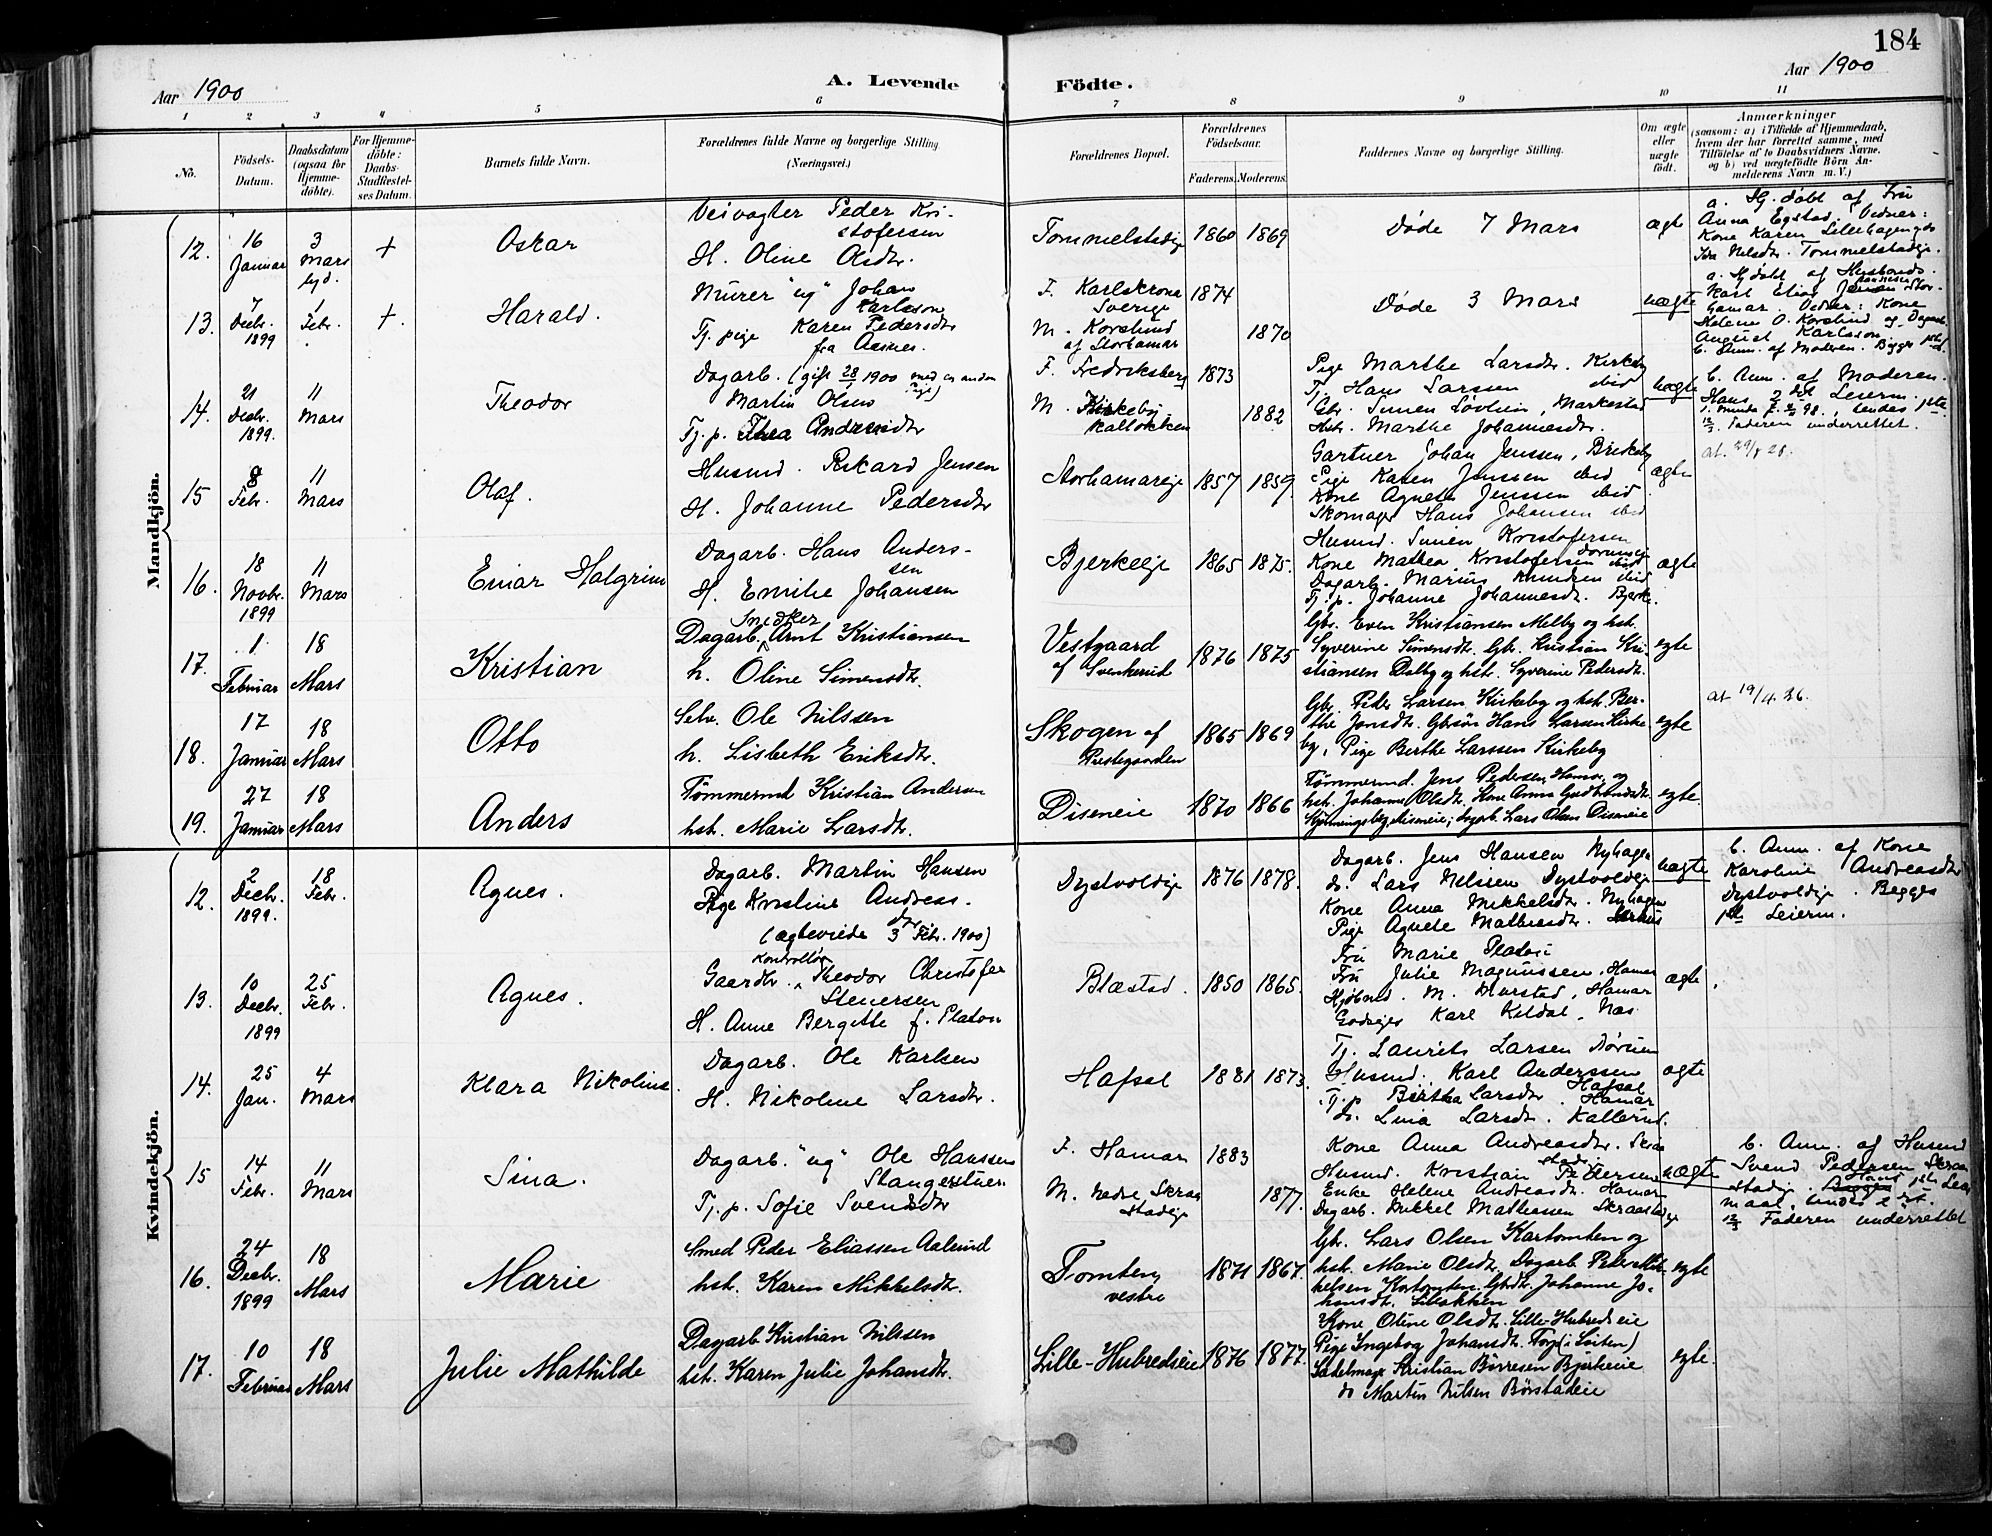 184
Aar 1900
A. Levende Födte.
Aar 1900
1 2 3 4 5 6 7 8 9 10 11
No.
Födsels-Datum.
Daabsdatum (ogsaa för Hjemme-döbte).
For Hjemme-döbte: Daabs-Stadfestel-ses Datum.
Barnets fulde Navn.
Forældrenes fulde Navne og borgerlige Stilling (Næringsvei.)
Forældrenes Bopæl.
Forældrenes Födselsaar.
Faderens. Moderens.
Faddernes Navne og borgerlige Stilling.
Om ægte eller uægte födt.
Anmærkninger
(saasom: a) i Tilfælde af Hjemmedaab,
hvem der har forrettet samme, med
Tilföielse af to Daabsvidners Navne,
og b) ved uægtefödte Börn An-
melderens Navn m. V.)
Mandkjön.
12. 16 Januar
3 Mars
+
Oskar
Veivogter Peder Kri-
stofersen
H. Oline Olsdtr.
Tommelstadeje
1860 1869
Døde 7 Mars
ægte
a. Hj. døbt af Fru
Anna Egstad. Vidner:
Kone Karen
Tommelstadeje.
13. 7 Decbr. 1899
1 Febr.
+.
Harald.
Murer "ug" Johan
Karlsson
Tj. pige Karen Pedersdtr
fra Aasnes.
F. Karlskrona
Sverige
M. Korslund
af Storhamar
1874
1870
Døde 3 Mars
uægte
a. Hj. døbt af Husbonds.
Karl Elias
hamar. Vidner: Kone
Helene O. Korslund og Dagarb.
August Karlsson
b. Anm. af Moderen. Begges 1ste L.
14. 21 Decbr. 1899.
11 Mars
Theodor
Dagarb. (gift 28/1 1900 med en anden Pige)
Martin Olsen
Tj. p. Thea Andersdtr
F. Fredriksberg
M. Kirkeby
kalløkken
1873
1882
Pige Marthe Larsdtr. Kirkeby
Tj. Hans Larssen ibid
Gbr. Simen Løvlien, Markestad
Hstr. Marthe Johannesdtr.
uægte
b. Anm. af Moderen.
Hans 2det Leierm.
Hendes 1ste
12/3. Faderen underrettet.
15 8 Febr.
11 Mars
Olaf.
Husmd. Rikard Jensen
H. Johanne Pedersdtr
Storhamareje
1857 1859.
Gartner Johan Jenssen, Birkeby
Pige Karen Jenssen ibid
Kone Agnete Jenssen ibid
Skomager Hans Johansen ibid
ægte
at. 29/8 28.
16. 18 Novbr. 1899
11 Mars
Einar Halgrim
Dagarb. Hans Anders-
sen
H. Emilie Johansen
Bjerkeeje
1865 1875.
Husmd. Simen Kristofersen
Kone Mathea Kristofersen ibid
Dagarb. Marius Knudsen ibid
Tj. p. Johanne Johannesdtr. Bjerke.
ægte
17. 1. Februar
18 Mars
Kristian
Snedker
Dagarb. Arnt Kristiansen
h. Oline Simensdtr.
Vestgaard
af Svenkerud
1876 1875
Gbr. Even Kristiansen Melby og hstr.
Syverine Simensdtr. Gbr. Kristian Kri-
stiansen Dalby og hstr. Syverine Pedersdtr.
egte
18. 17 Januar
18 Mars
Otto
Selv. Ole Nilssen
h. Lisbeth Eriksdtr.
Skogen af
Prestegaarden
1865 1869
Gbr. Peder Larsen Kirkeby og hstr. Ber-
the Jonsdtr. Gbrsön Hans Larsen Kirke-
by, Pige Berthe Larssen Kirkeby
egte
at 19/4.36.
19. 27 Januar
18 Mars
Anders
Tömmermd Kristian Andersen
hstr. Marie Larsdtr.
Diseneie
1870 1866
Tømmermd. Jens Pedersen, Hamar, og
hstr. Johanne Olsdtr. Kone Anna Gudbrandsdtr.
Diseneie; Dagarb. Lars Olsen Diseneie
egte.
Kvindekjön.
12. 2 Decbr. 1899.
18 Febr.
Agnes.
Dagarb. Martin Hansen
Pige Kristine Andreas-
dtr
(ægteviede 3 Febr. 1900)
Dystvoldeje
1876 1878.
Dagarb. Jens Hansen Nyhagen
do. Lars Nilssen Dystvoldeje
Kone Anna Mikkelsdtr. Nyhagen
Pige Agnete Mathiasdtr.
uægte
b. Anm. af Kone
Karoline Andreasdtr
Dystvoldeje. Begges
1ste Leierm.
13. 10 Decbr. 1899
25 Febr.
Agnes.
kontrollör
Gaardbr. Theodor Christofer
Stenersen
H. Anne Bergitte f. Platou
Blæstad.
1850 1865.
Fru Marie Platou
Fru Julie Magnussen, Hamar
Kjöbmd. M. Murstad, Hamar
Godsejer Karl Kildal, Næs
ægte
14. 25 Jan.
4 Mars
Klara Nikoline.
Dagarb. Ole Karlsen
H. Nikoline Larsdtr.
Hafsal
1881 1873.
Tj. Laurits Larsen Dørum
Husmd. Karl Anderssen
Hafsal
Tj. p. Bertha Larsdtr. Hamar
do. Lina Larsdtr. Kallerud.
ægte
15 14 Febr.
11 Mars
Sina.
Dagarb. "ug" Ole Hanssen
Stangestuen
Tj. p. Sofie Svendsdtr
F. Hamar
M. Nedre Skraa-
stadeje
1883
1877.
Kone Anna Andreasdtr. Skraa-
stad.
Husmd. Kristian Pedersen
Enke Helene Andreasdtr. Hamar
Dagarb. Mikkel Mathiassen Skraastadeje
uægte
b. Anm. af Husmd
Svend Pedersen Skraa-
stadeje. Hans 1ste Leier-
maal, hendes 2det.
12/3 Faderen underrettet
16. 24 Decbr. 1899
18 Mars
Marie
Smed Peder Eliassen Aalund
hstr. Karen Mikkelsdtr.
Tomten
vestre
1871 1867.
Gbr. Lars Olsen Kartomten og
hstr. Marie Olsdtr. Dagarb. Peder Mik-
kelsen Kartomten. Gbdtr. Johanne Jo-
hansdtr. Lilløkken
egte
17. 10 Februar
18 Mars
Julie Mathilde
Dagarb Kristian Nilssen
hstr. Karen Julie Johansdtr.
Lille-Hubredseie
1876 1877.
Kone Oline Olsdtr. Lille-Hubredseie
Pige Ingebog Johansdtr. Torp (i Löiten)
Sadelmager Kristian Börresen Bjerkeeie
do Martin Nilsen Börstadeie
egte.